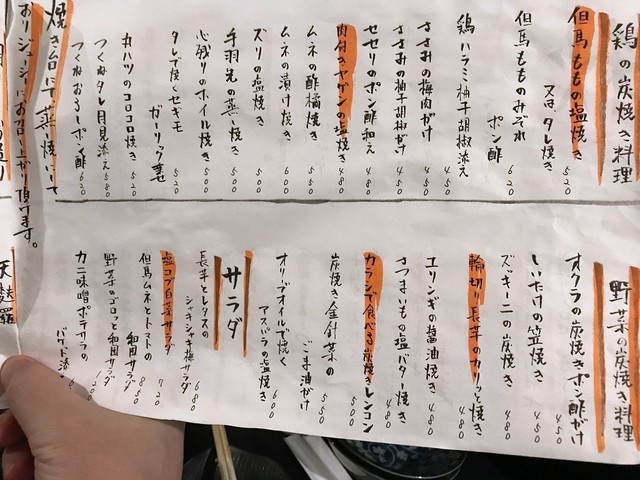 鶏の炭焼き料理
但馬ももの塩焼き
又は、タレ焼き 520
但馬もものみぞれ
ポン酢 620
鶏ハラミ柚子胡椒添え 450
ささみの梅肉がけ 450
ささみの柚子胡椒がけ 450
セセリのポン酢和え 480
肉付きヤゲンの塩焼き 480
ムネの酢橘焼き 500
ムネの漬け焼き 600
ズリの塩焼き 500
手羽先の蒸し焼き 500
心残りのホイル焼き 500
タレで焼くセギモ
ガーリック妻 520
丸ハツのコロコロ焼き 520
つくねタレ月見添え 580
つくねおろしポン酢 620
焼き台にて蒸し焼いて
おりジューシーにお召し上がり頂けます。
野菜の炭焼き料理
オクラの炭焼きポン酢がけ 450
しいたけの笠焼き 450
ズッキーニの炭焼き 480
輪切り長芋のカリッと焼き 480
エリンギの醤油焼き 480
さつまいもの塩バター焼き 480
カランで食べる炭焼きレンコン 500
炭焼き金針菜の
ごま油がけ 550
オリーブオイルで焼く
アスパラの塩焼き 600
サラダ
長芋とレタスの
シャキシャキ梅サラダ 680
塩コブ白菜サラダ 720
但馬ムネとトマトの
和風サラダ 850
野菜のゴロっと和風サラダ
カニ味噌ポテサラの
バゲット添え
天麩羅